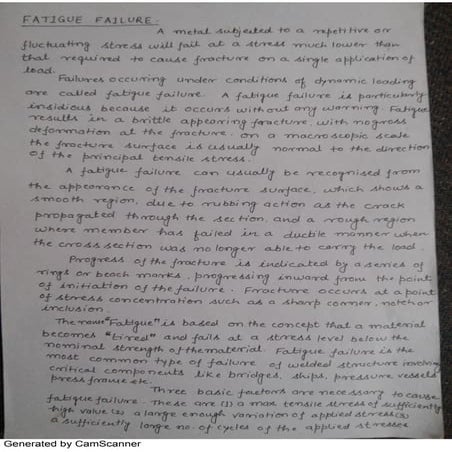 FATIGUE FAILURE:
A metal subjected to a repetitive or
fluctuating stress will fail at a stress much lower than
that required to cause fracture on a single application of
load.
Failures occuring under conditions of dynamic loading
are called fatigue failure. A fatigue failure is particularly
insidious because it occurs without any warning. Fatigue
results in a brittle appearing fracture, with no gross
deformation at the fracture. on a macroscopic scale
the fracture surface is usually normal to the direction
of the principal tensile stress.
A fatigue failure can usually be recognised from
the appearance of the fracture surface, which shows a
smooth region, due to rubbing action as the crack
propagated through the section, and a rough region
where member has failed in a ductile manner when
the cross section was no longer able to carry the load.
Progress of the fracture is indicated by a series of
rings or beach marks, progressing inward from the point
of initiation of the failure. Fracture occurs at a point
of stress concentration such as a sharp corner, notch or
inclusion.
The name "Fatigue" is based on the concept that a material
becomes "tired" and fails at a stress level below the
nominal strength of the material. Fatigue failure is the
most common type of failure of welded structure involving
critical components like bridges, ships, pressure vessels
press frame etc.
Three basic factors are necessary to cause
fatigue failure. These are (1) a max tensile stress of sufficiently
high value (2) a large enough variation of applied stress (3)
a sufficiently large no. of cycles of the applied stresses
Generated by CamScanner